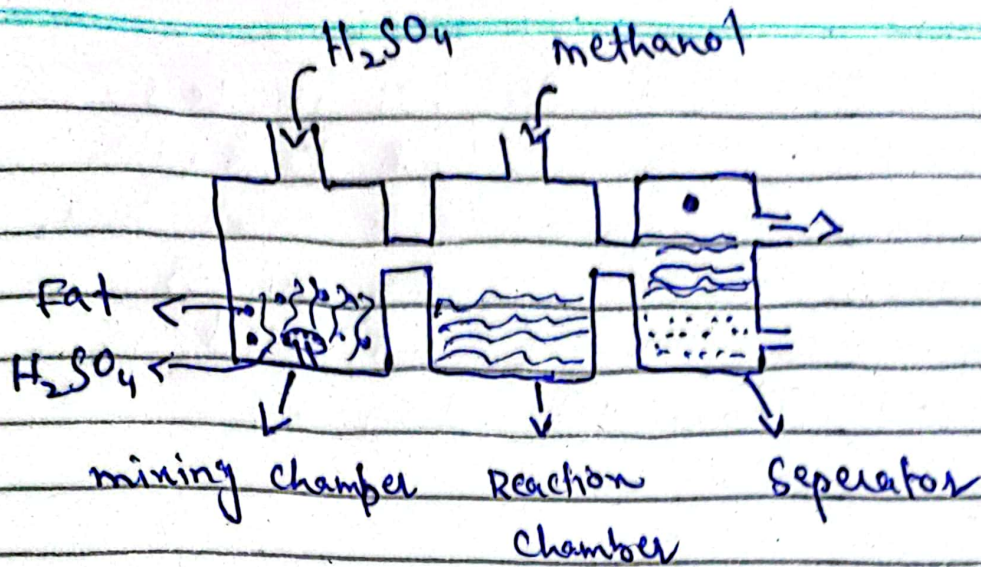 H₂SO₄
methanol
Fat
H₂SO₄
mixing chamber
Reaction
chamber
Seperator